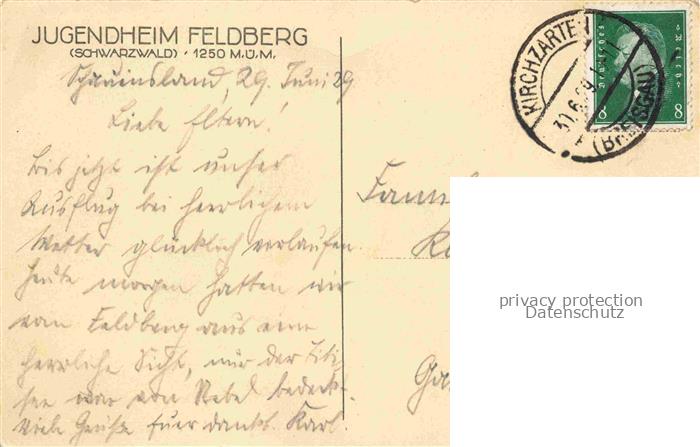 JUGENDHEIM FELDBERG
(SCHWARZWALD) · 1250 M.Ü.M.
Schauinsland, 29. Juni 29
Liebe Eltern!
Bis jetzt ist unser
Ausflug bei herrlichem
Wetter glücklich verlaufen.
Heute morgen hatten wir
vom Feldberg aus eine
herrliche Sicht, nur der Titi-
see war von Nebel bedeckt.
Viele Grüße Karl.
KIRCHZARTEN
30.6.29
(BREISGAU)
Deutsches Reich
8 8
Fam
privacy protection
Datenschutz